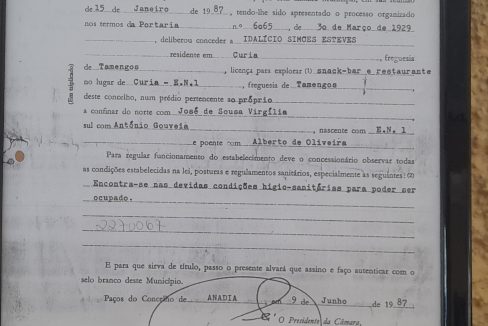 de 15 de Janeiro de 19 87, tendo-lhe sido apresentado o processo organizado
nos termos da Portaria n.º 6065, de 30 de Março de 1929
, deliberou conceder a IDALÍCIO SIMÕES ESTEVES
residente em Curia, freguesia
de Tamengos, licença para explorar (1) snack-bar e restaurante
no lugar de Curia - E.N.1, freguesia de Tamengos
deste concelho, num prédio pertencente ao próprio
a confinar do norte com José de Sousa Virgília
sul com António Gouveia, nascente com E.N. 1
e poente com Alberto de Oliveira
Para regular funcionamento do estabelecimento deve o concessionário observar todas
as condições estabelecidas na lei, posturas e regulamentos sanitários, especialmente as seguintes: (2)
Encontra-se nas devidas condições higio-sanitárias para poder ser
ocupado.
2270067
E para que sirva de título, passo o presente alvará que assino e faço autenticar com o
selo branco deste Município.
Paços do Concelho de ANADIA, em 9 de Junho de 19 87.
O Presidente da Câmara,